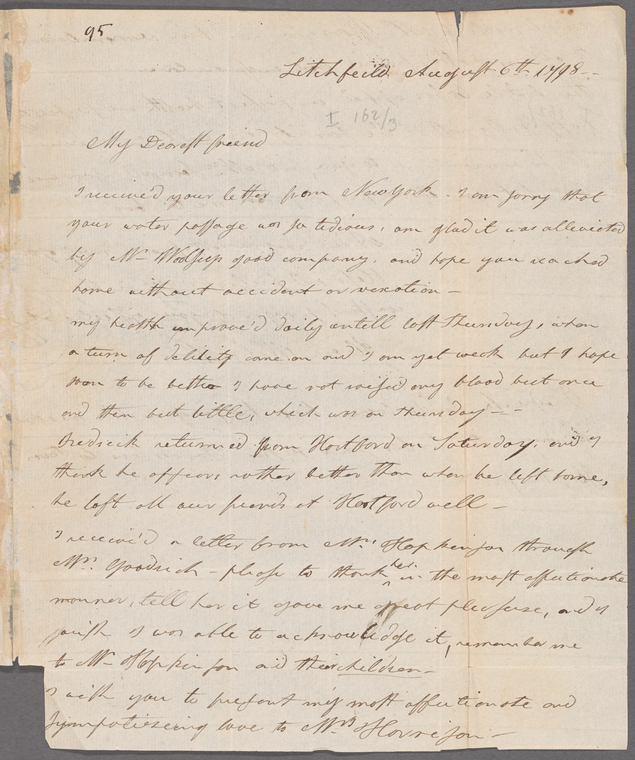 95
Litchfeild August 6th 1798 -
I 162/3
My Dearest freind
I receive'd your letter from New York - I am sorry that
your water passage was so tedious, am glad it was alleviated
by Mr Woolseys good company, and hope you reached
home without accident or vexation -
my health improve'd daily untill last thursday, when
a turn of debility came on and I am yet weak but I hope
soon to be better I have not raise'd any blood but once
and then but little, which was on thursday -
Fredrick returned from Hartford on Saturday, and I
think he appears rather better than when he left home,
he left all our freinds at Hartford well -
I receive'd a letter from Mrs Hopkinson through
Mrs Goodrich - please to thank her in the most affectionate
manner, tell her it gave me great pleasure, and I
wish I was able to acknowledge it, remember me
to Mr Hopkinson and their children -
I wish you to present my most affectionate and
sympatiseing love to Mrs